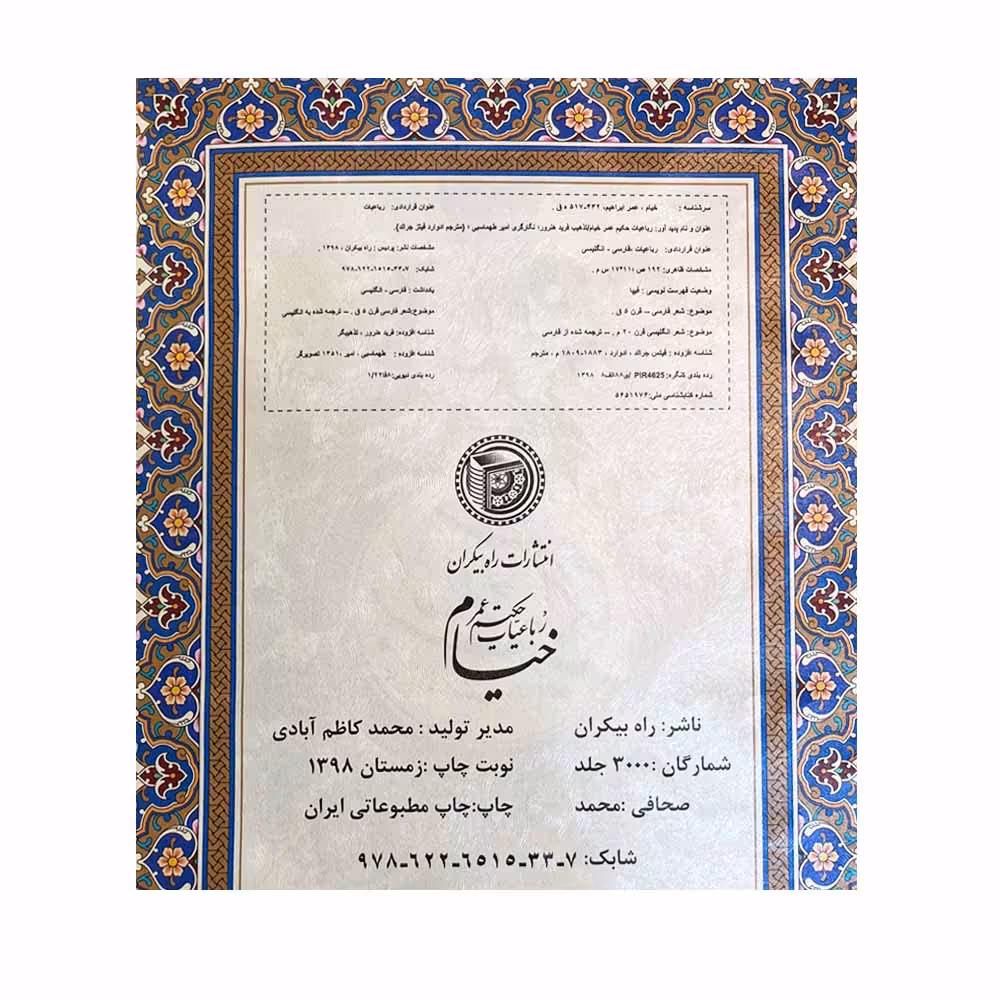 سرشناسه : خیام ، عمر ابراهیم، ۴۳۲-۵۱۷ ه ق . عنوان قراردادی: رباعیات
عنوان و نام پدید آور: رباعیات حکیم عمر خیام/تذهیب فرید هنرور؛ نگارگری امیر طهماسبی ؛ {مترجم ادوارد فیتز جرالد}.
عنوان قراردادی: رباعیات ،فارسی - انگلیسی مشخصات نشر: پردیس : راه بیکران ، ۱۳۹۸ .
مشخصات ظاهری: ۱۹۲ ص ؛ ۱۱*۱۷ س م . شابک: ۷-۳۳-۶۵۱۵-۶۲۲-۹۷۸
وضعیت فهرست نویسی : فیپا یادداشت : فارسی - انگلیسی
موضوع: شعر فارسی -- قرن ۵ ق . موضوع:شعر فارسی قرن ۵ ق . -- ترجمه شده به انگلیسی
موضوع: شعر انگلیسی قرن ۲۰ م . -- ترجمه شده از فارسی شناسه افزوده: فرید هنرور ، تذهیبگر
شناسه افزوده : فیتس جرالد ، ادوارد ، ۱۸۸۳-۱۸۰۹ م ، مترجم شناسه افزوده : طهماسبی ، امیر ،۱۳۵۱ تصویرگر
رده بندی کنگره: PIR4625 ۱۳۹۸ رده بندی دیویی: ۱/۲۲
شماره کتابشناسی ملی: ۵۶۵۱۹۷۶
انتشارات راه بیکران
رباعیات حکیم عمر
خیام
ناشر: راه بیکران مدیر تولید : محمد کاظم آبادی
شمارگان :۳۰۰۰ جلد نوبت چاپ :زمستان ۱۳۹۸
صحافی :محمد چاپ:چاپ مطبوعاتی ایران
شابک: ۷-۳۳-۶۵۱۵-۶۲۲-۹۷۸